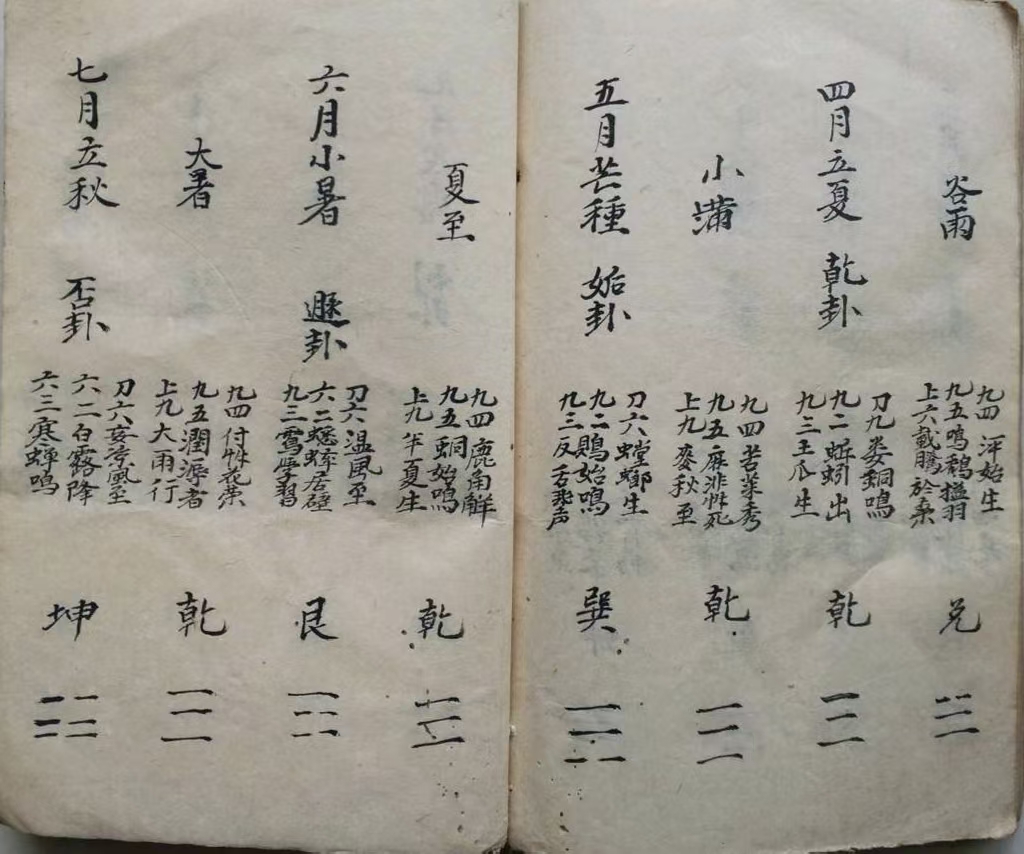 谷雨
九四 泙始生
九五鳴鵓搵羽
上六載鵬於桑
兑
四月立夏 乾卦
刀九娄蜩鳴
九二蚯蚓出
九三王瓜生
乾
小滿
九四苦菜秀
九五麻非艸死
上九麥秋至
乾
五月芒種 姤卦
刀六螳螂生
九二鵙始鳴
九三反舌無声
巽
夏至
九四鹿角觧
九五蜩始鳴
上九半夏生
乾
六月小暑 遯卦
刀六温風至
六二蟋蟀居壁
九三鴬斈習
艮
大暑
九四付艸花荣
九五潤溽者
上九大雨行
乾
七月立秋 否卦
刀六妄涼風至
六二白露降
六三寒蟬鳴
坤